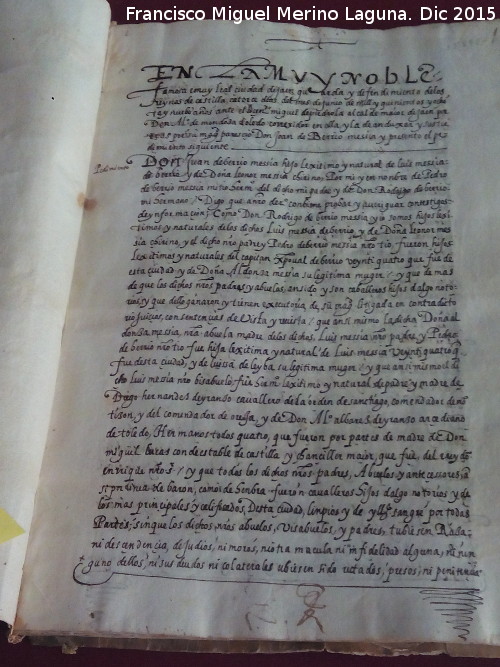 Francisco Miguel Merino Laguna. Dic 2015
EN LA MUY NOBLE
famosa e muy leal ciudad de Jaen guarda y defendimiento de los
Reynos de castilla, catorce dias del mes de junio de mill y quinientos y
y nuebe años ante el
Don Al.º de mendoça
parescio Don Juan de Berrio messia y presento el pe
dimiento siguiente
Pedimiento
DON Juan de berrio messia hijo lexitimo y natural de luis messia
de berrio y de Doña leonor messia cherino Por mi y en nombre de Pedro
de berrio messia nuestro del dicho mi padre y de Don Rodrigo de berrio
mi hermano / Digo que a nro der. conbiene probar y averiguar con testigos
de ynformacion / Como Don Rodrigo de berrio messia y yo somos hijos lexi
timos y naturales de los dichos Luis messia de berrio, y de Doña leonor mes
sia cherino, y el dicho nro padre y Pedro de berrio messia nro tio, fueron hijos
lexitimos y naturales del capitan Xpoual de berrio veynti quatro que fue de
esta ciudad, y de Doña Aldonza messia su legitima muger / y que de mas
de que los dichos nros padres y abuelos, an sido y son caballeros hijos dalgo noto
rios y que dello ganaron y tienen executoria de su mag.d litigada en contradito
rio juicio, con sentencias de vista y revista / que ansi mismo la dicha Doña al
donsa messia, nra abuela madre de los dichos Luis messia nro padre, y Pedro
de berrio nro tio fue hija lexitima y natural de Luis messia veynti quatro q
fue desta ciudad, y de luissa de leyba su legitima muger / y que ansi mismo el di
cho luis messia nro bisabuelo fue lexitimo y natural de padre y madre de
Diego hernandes de yranso cavallero de la orden de santiago, comendador de mon
tison, y del comendador de oreja, y de Don Al.º albares de yranso arcediano
de toledo, Hermanos todos quatro, que fueron por partes de madre de Don
miguel lucas condestable de castilla y chanciller maior, que fue, del rey don
enrique nro s.r / y que todos los dichos nros padres, Abuelos, y antecessores
por linea de baron, como de hembra fueron cavalleros hijos dalgo notorios y de
los mas principales y calificados, desta ciudad, limpios y de sangre por todas
Partes, sin que los dichos, nros abuelos, visabuelos, y padres, tubiesen Raza,
ni descendencia, de judios, ni moros, ni otra macula ni infidelidad alguna, ni nin
guno dellos, ni sus deudos ni colaterales ubiesen sido citados, presos, ni